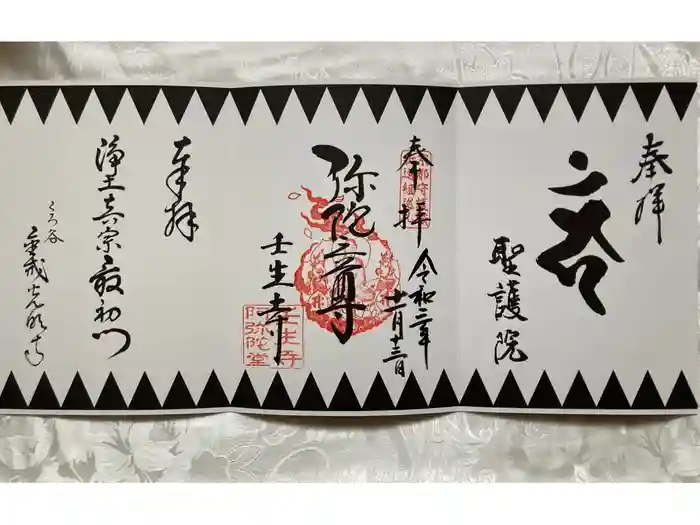 奉拝
聖護院
奉拝
令和二年
十一月十三日
弥陀三尊
壬生寺
壬生寺
阿弥陀堂
奉拝
浄土真宗最初門
くろ谷
金戒光明寺